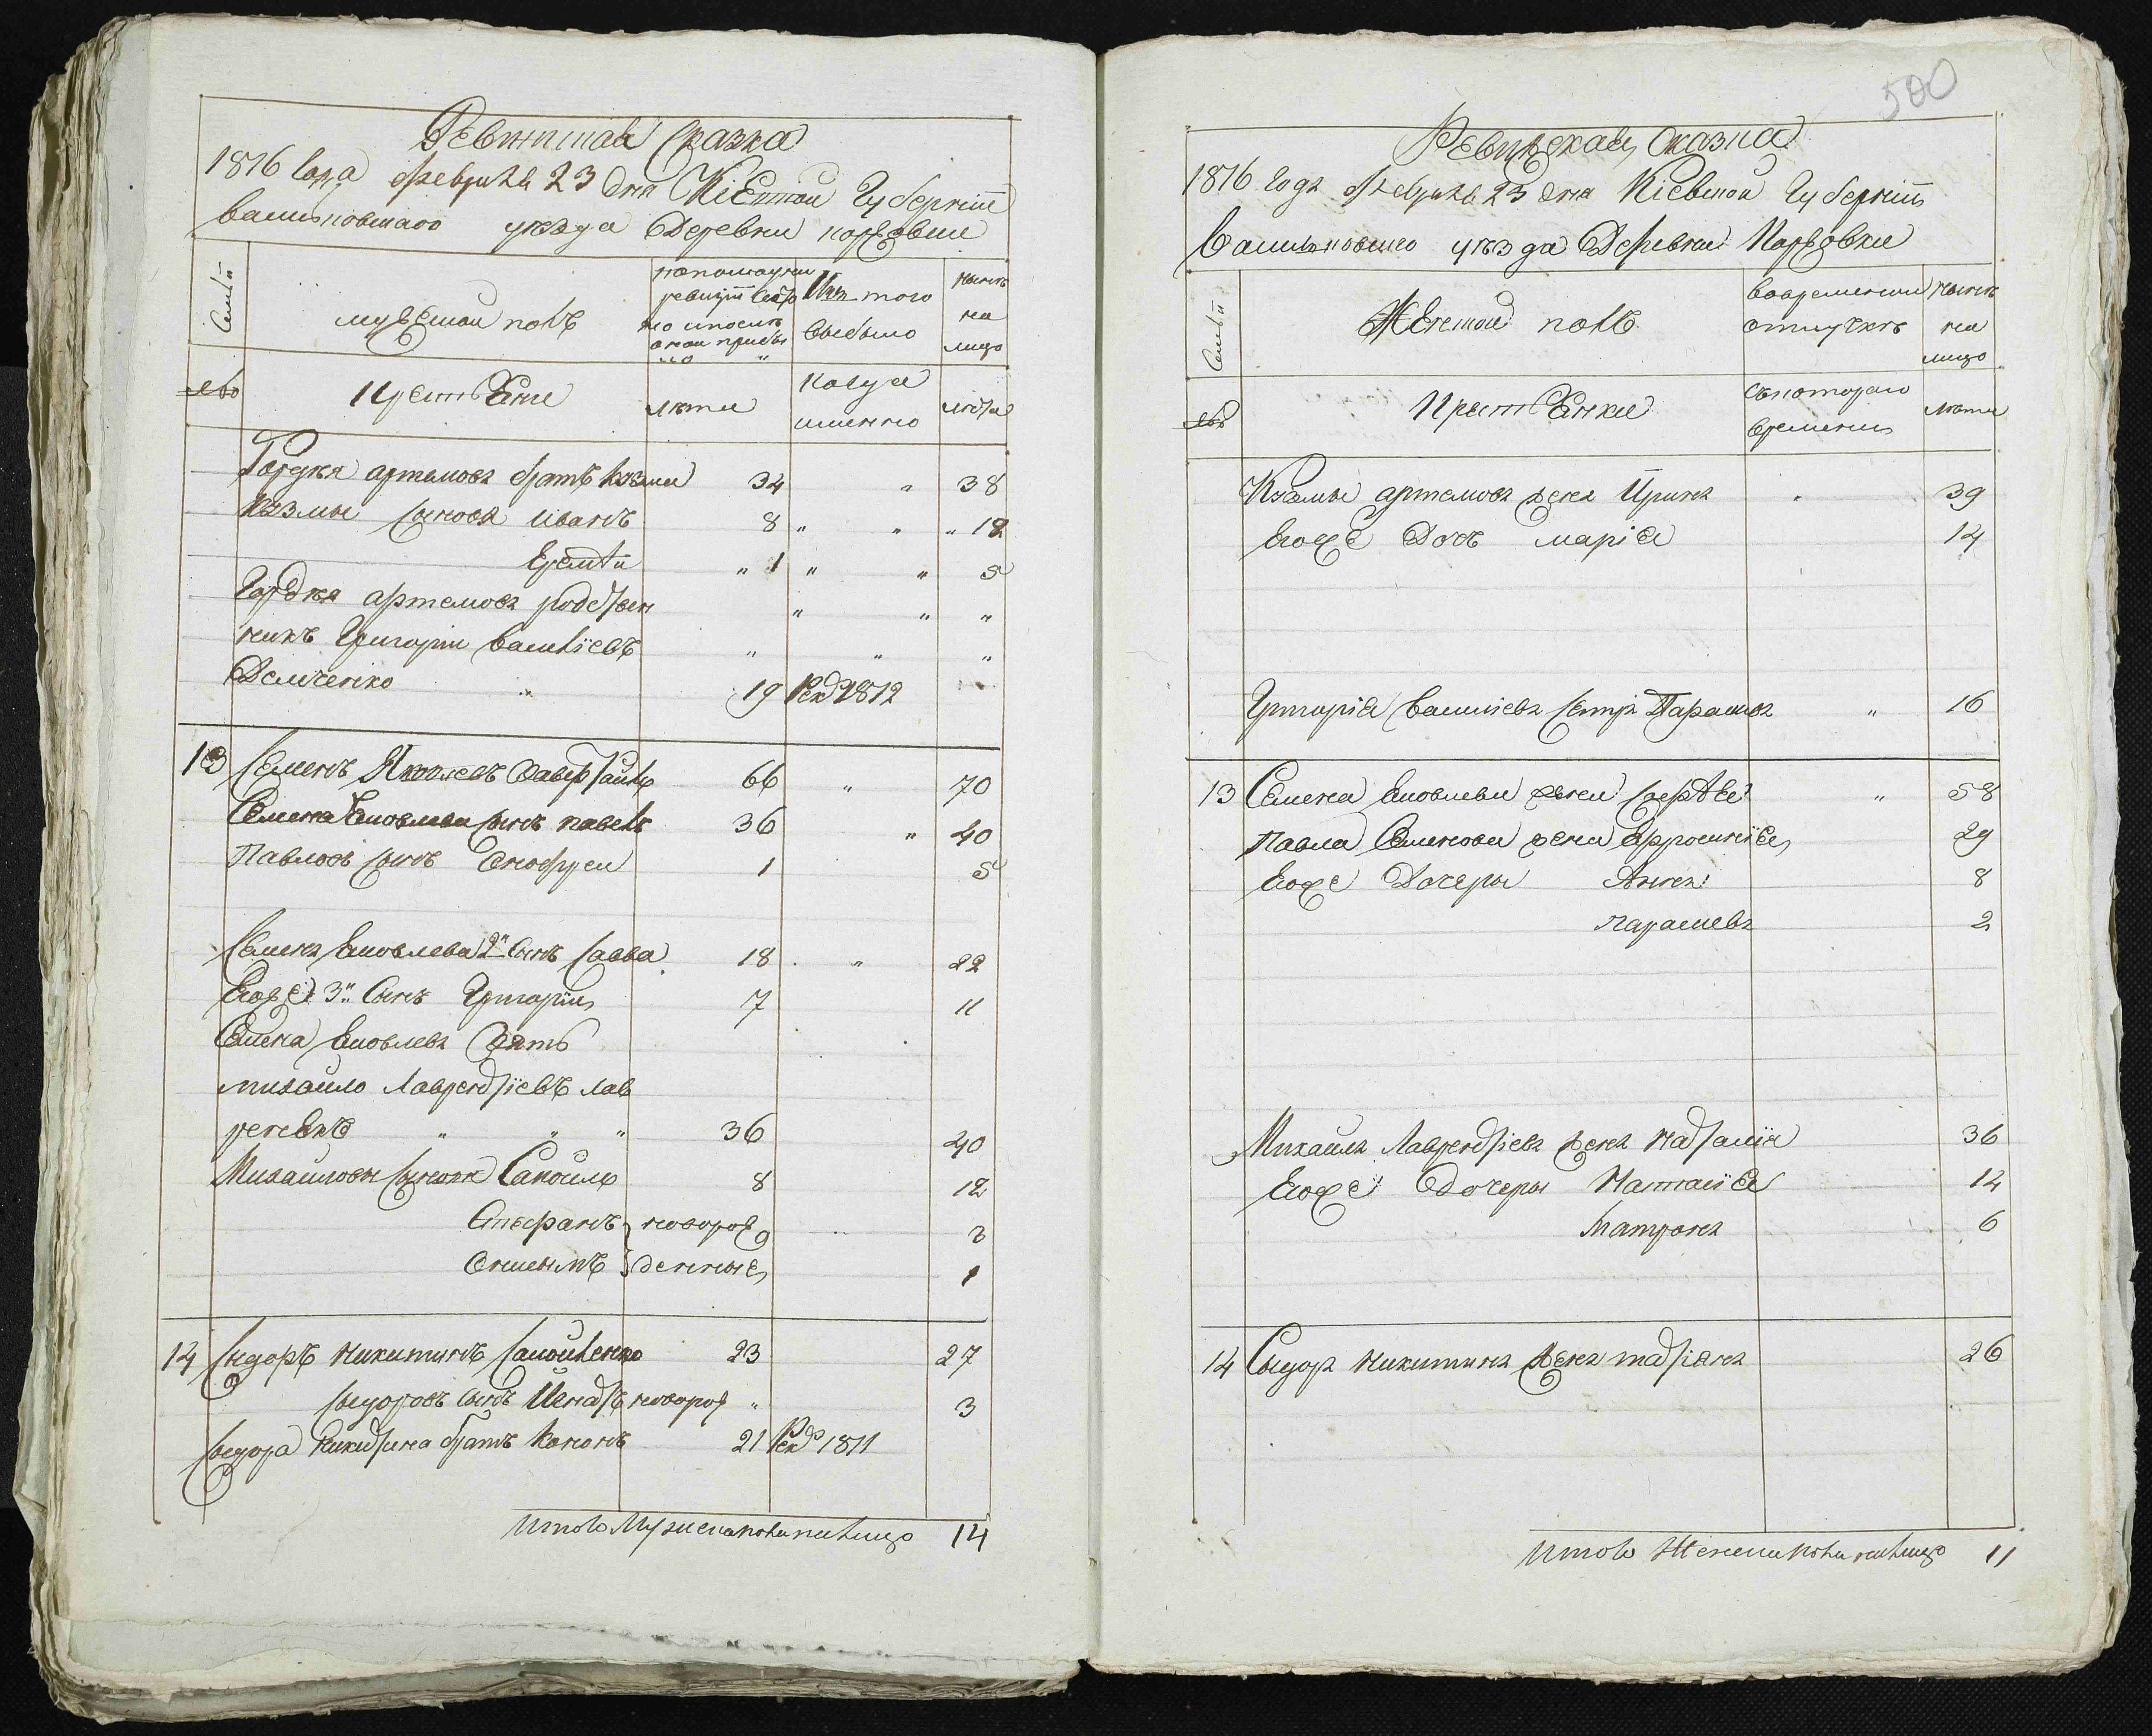 Ревижская Сказка
1816 Года февраля 23 дня Кіевской Губерніи
васильковскаго уезда Деревни порадовки
Семьи
мужеской полъ
по последней
ревизіи состо
яло и после
оной прибы
ло "
Изъ того
выбыло
ныне
на
лицо
№
Крестьяне
лета
когда
именно
лета
Гордея артемова братъ козма 34 " 38
Козмы сыновя иванъ 8 " " " 12
Еремей " 1 " " 5
Гордея артемова родствен " " "
никъ Григорій василіевъ " " "
Демченко " 19 Рек 1812
13 Семенъ Яковлевъ 66 " 70
Семена Яковлева сынъ павелъ 36 " 40
Павловъ сынъ Онофрей 1 5
Семена Яковлева 2й сынъ савва 18 " 22
Егоже 3й Сынъ Григорій 7 11
Семена Яковлева зять
михайло Лаврентіевъ лав
ренюкъ " " " 36 40
Михайловы сыновя Самойло 8 12
Стефанъ новорож 3
Онисимъ денные 1
14 Сидоръ никитинъ самойленко 23 27
сидоровъ сынъ Игнатъ новорож " 3
сидора никитина братъ кононъ 21 Рек 1811
Итого Мужеска пола налицо 14
500
Ревижская Сказка
1816 года февраля 23 дня Кіевской Губерніи
Васильковского уезда Деревни Порадовки
Семьи
Женской полъ
вовременной
отлучке
ныне
на
лицо
№
Крестьянки
Скотораго
времени
лета
Козмы артемова жена Ирина " 39
Егоже Дочь марія 14
Григорія василіева сестра Парасква " 16
13 Семена Яковлева жена софія " 58
Павла Семенова жена Афросинія 29
Егоже Дочеры Анна 8
парасква 2
Михайла Лаврентіева жена наталія 36
Егоже Дочеры Настасія 12
Матрона 6
14 Сидора никитина жена татіяна 26
Итого Женска пола налицо 11